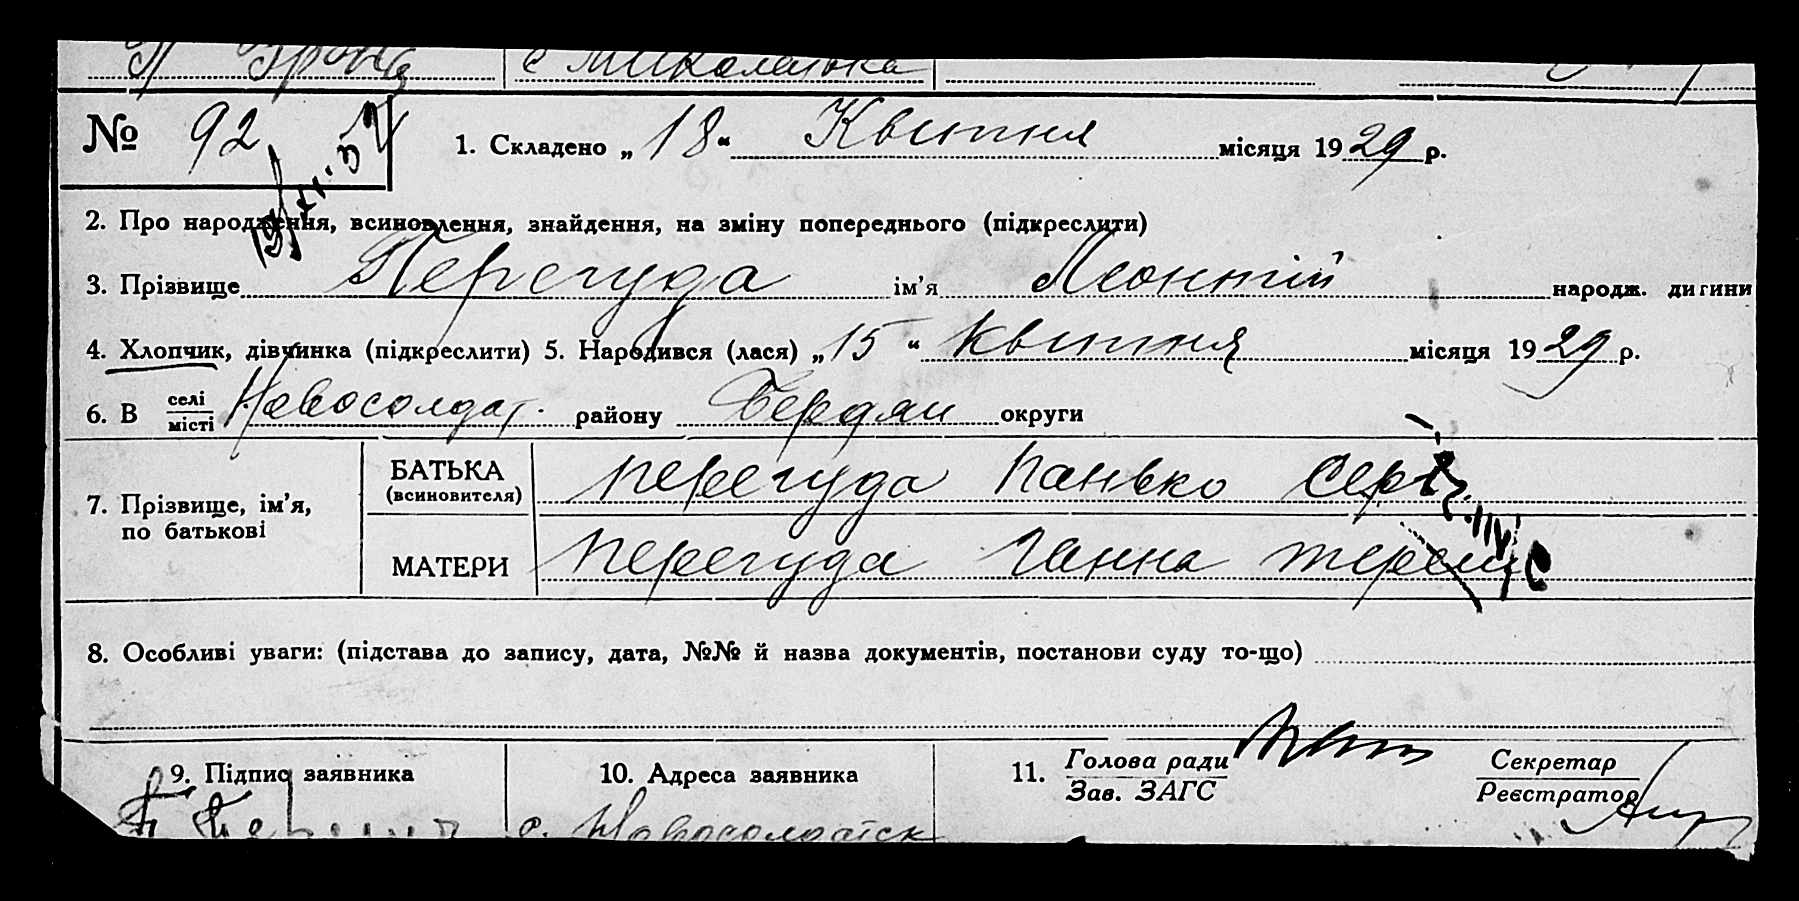 с Миколаївка
№ 92
1. Складено „ 18 “ Квітня місяця 1929 р.
2. Про народження, всиновлення, знайдення, на зміну попереднього (підкреслити)
3. Прізвище Перегуда ім’я Леонтій народж. дитини
4. Хлопчик, дівчинка (підкреслити) 5. Народився (лася) „ 15 “ квітня місяця 1929 р.
6. В селі місті Новосолдат. району Бердян округи
7. Прізвище, ім’я, по батькові
БАТЬКА (всиновителя) перегуда панько Серг.
МАТЕРИ перегуда ганна
8. Особливі уваги: (підстава до запису, дата, №№ й назва документів, постанови суду то-що)
9. Підпис заявника
10. Адреса заявника
с. Новосолдатск
11. Голова ради Зав. ЗАГС
Секретар Реєстратор